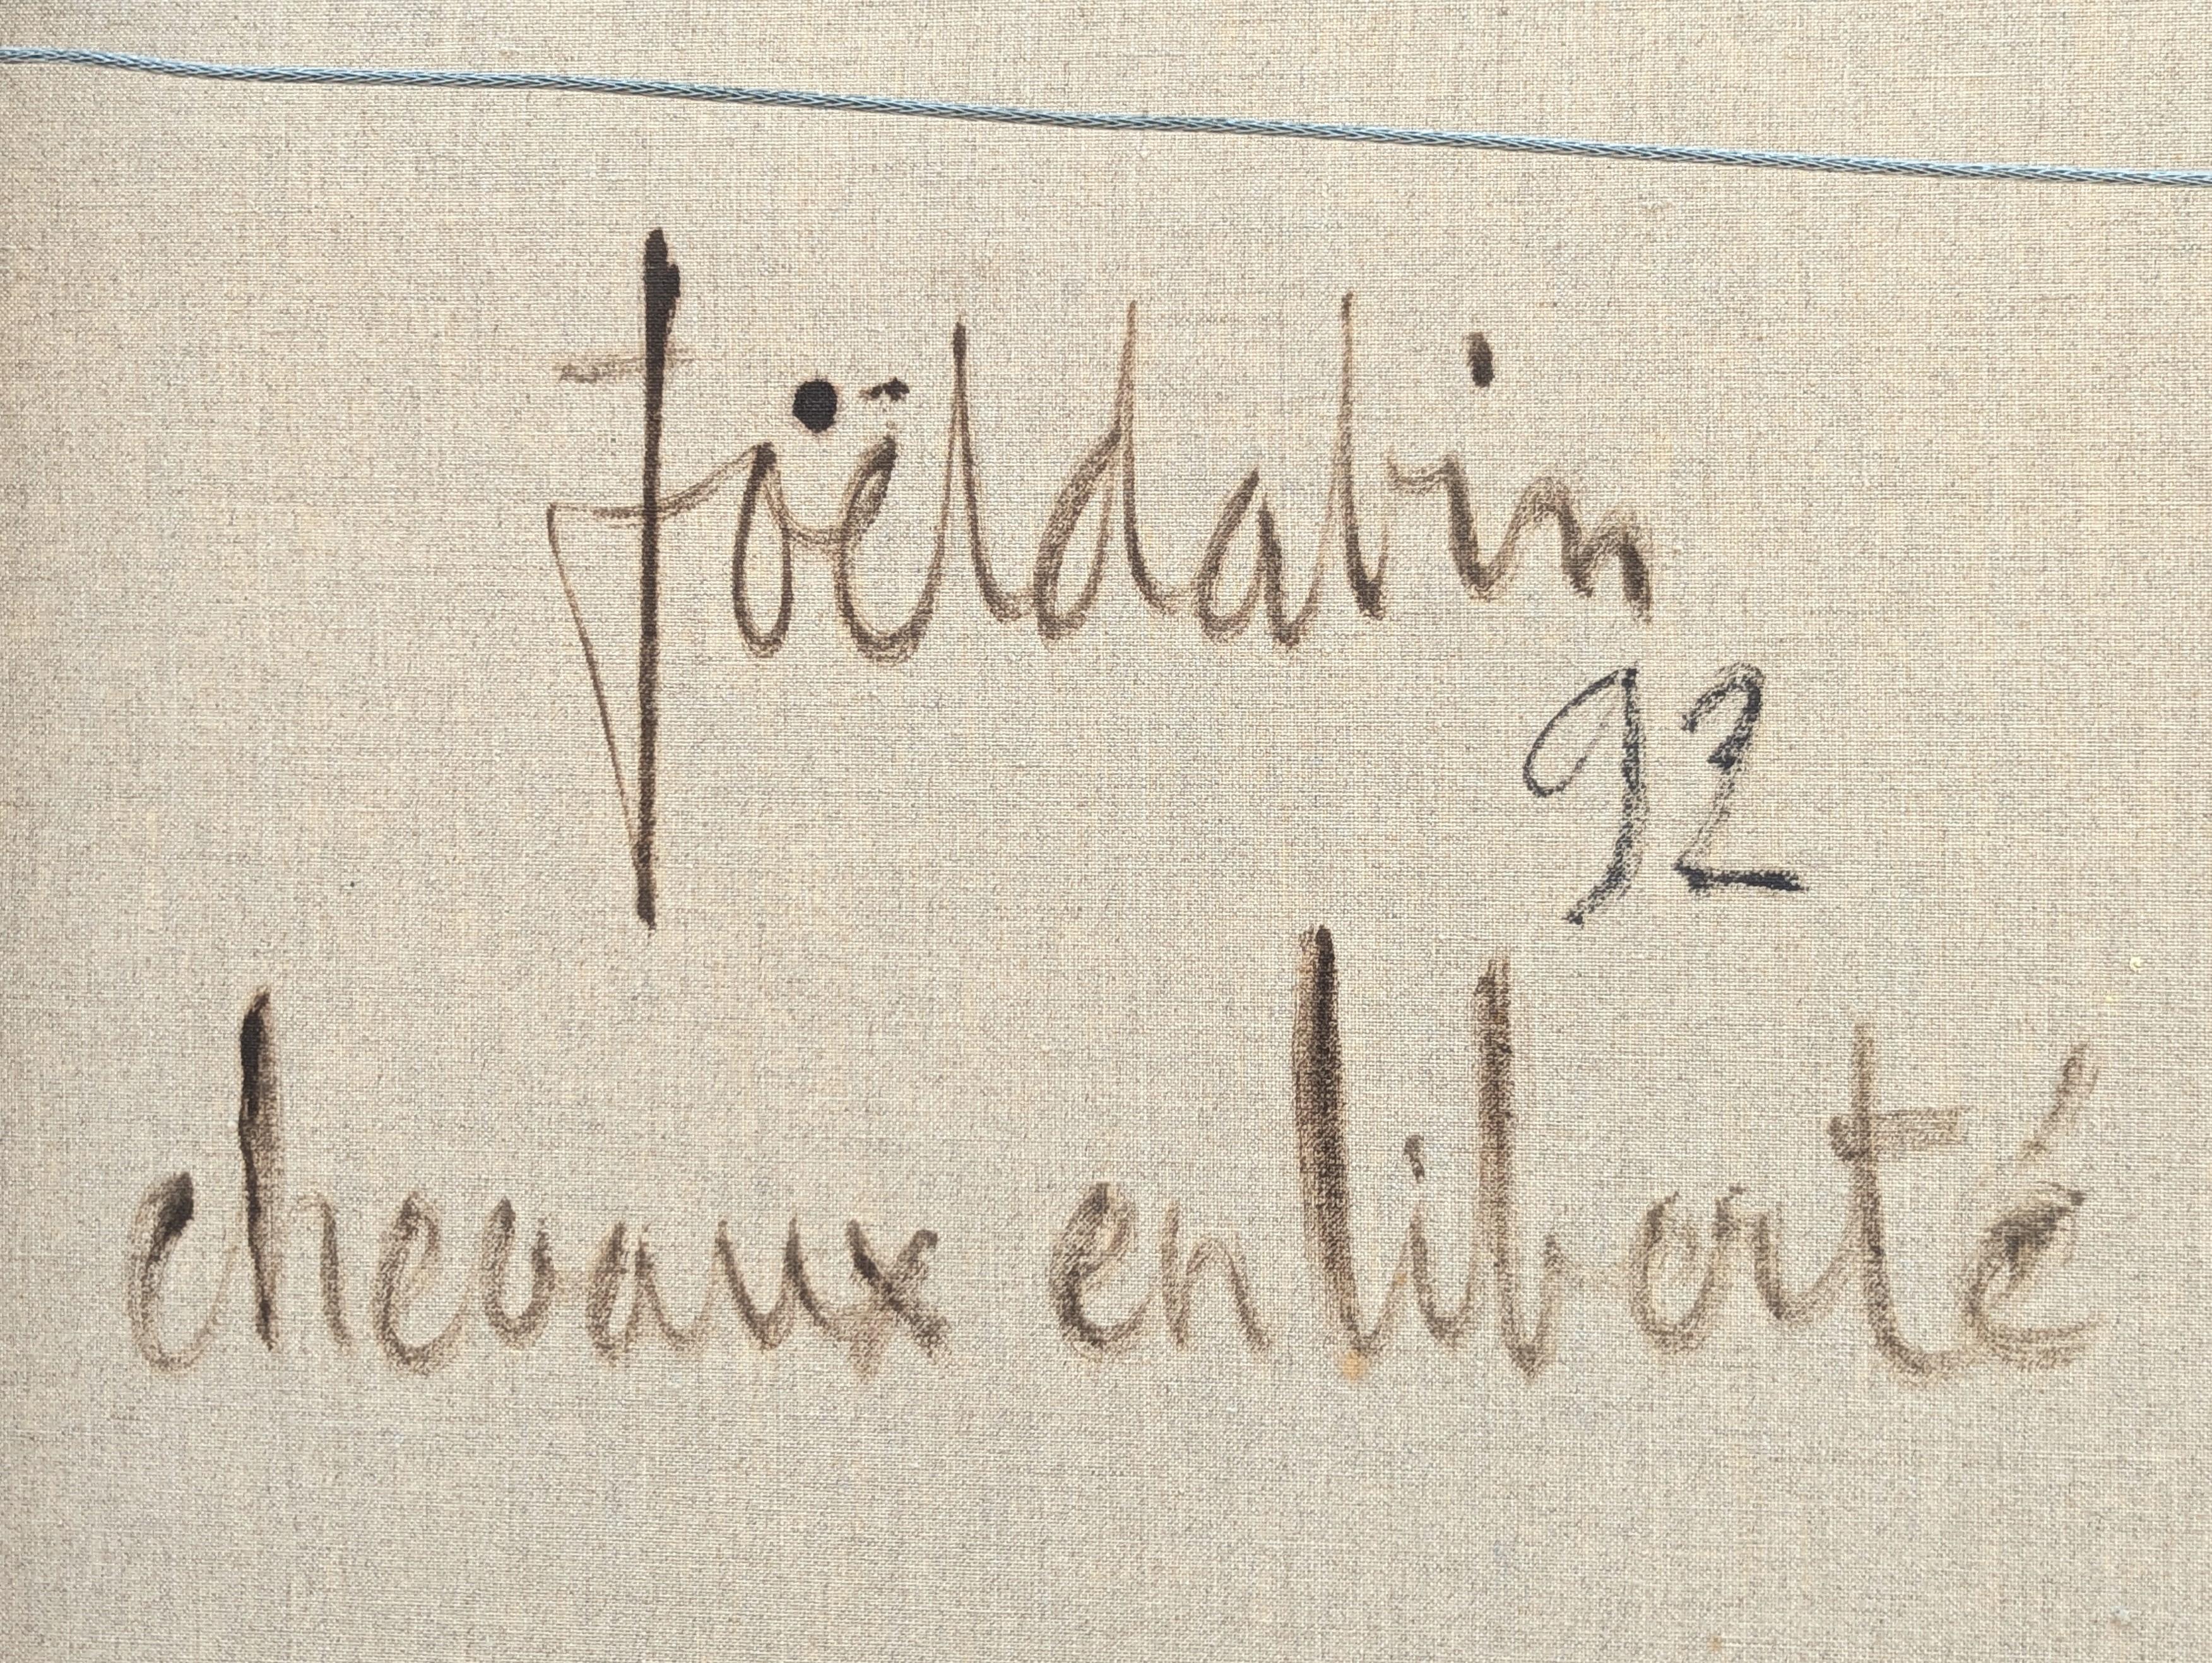 Joëldabin
92
chevaux en liberté